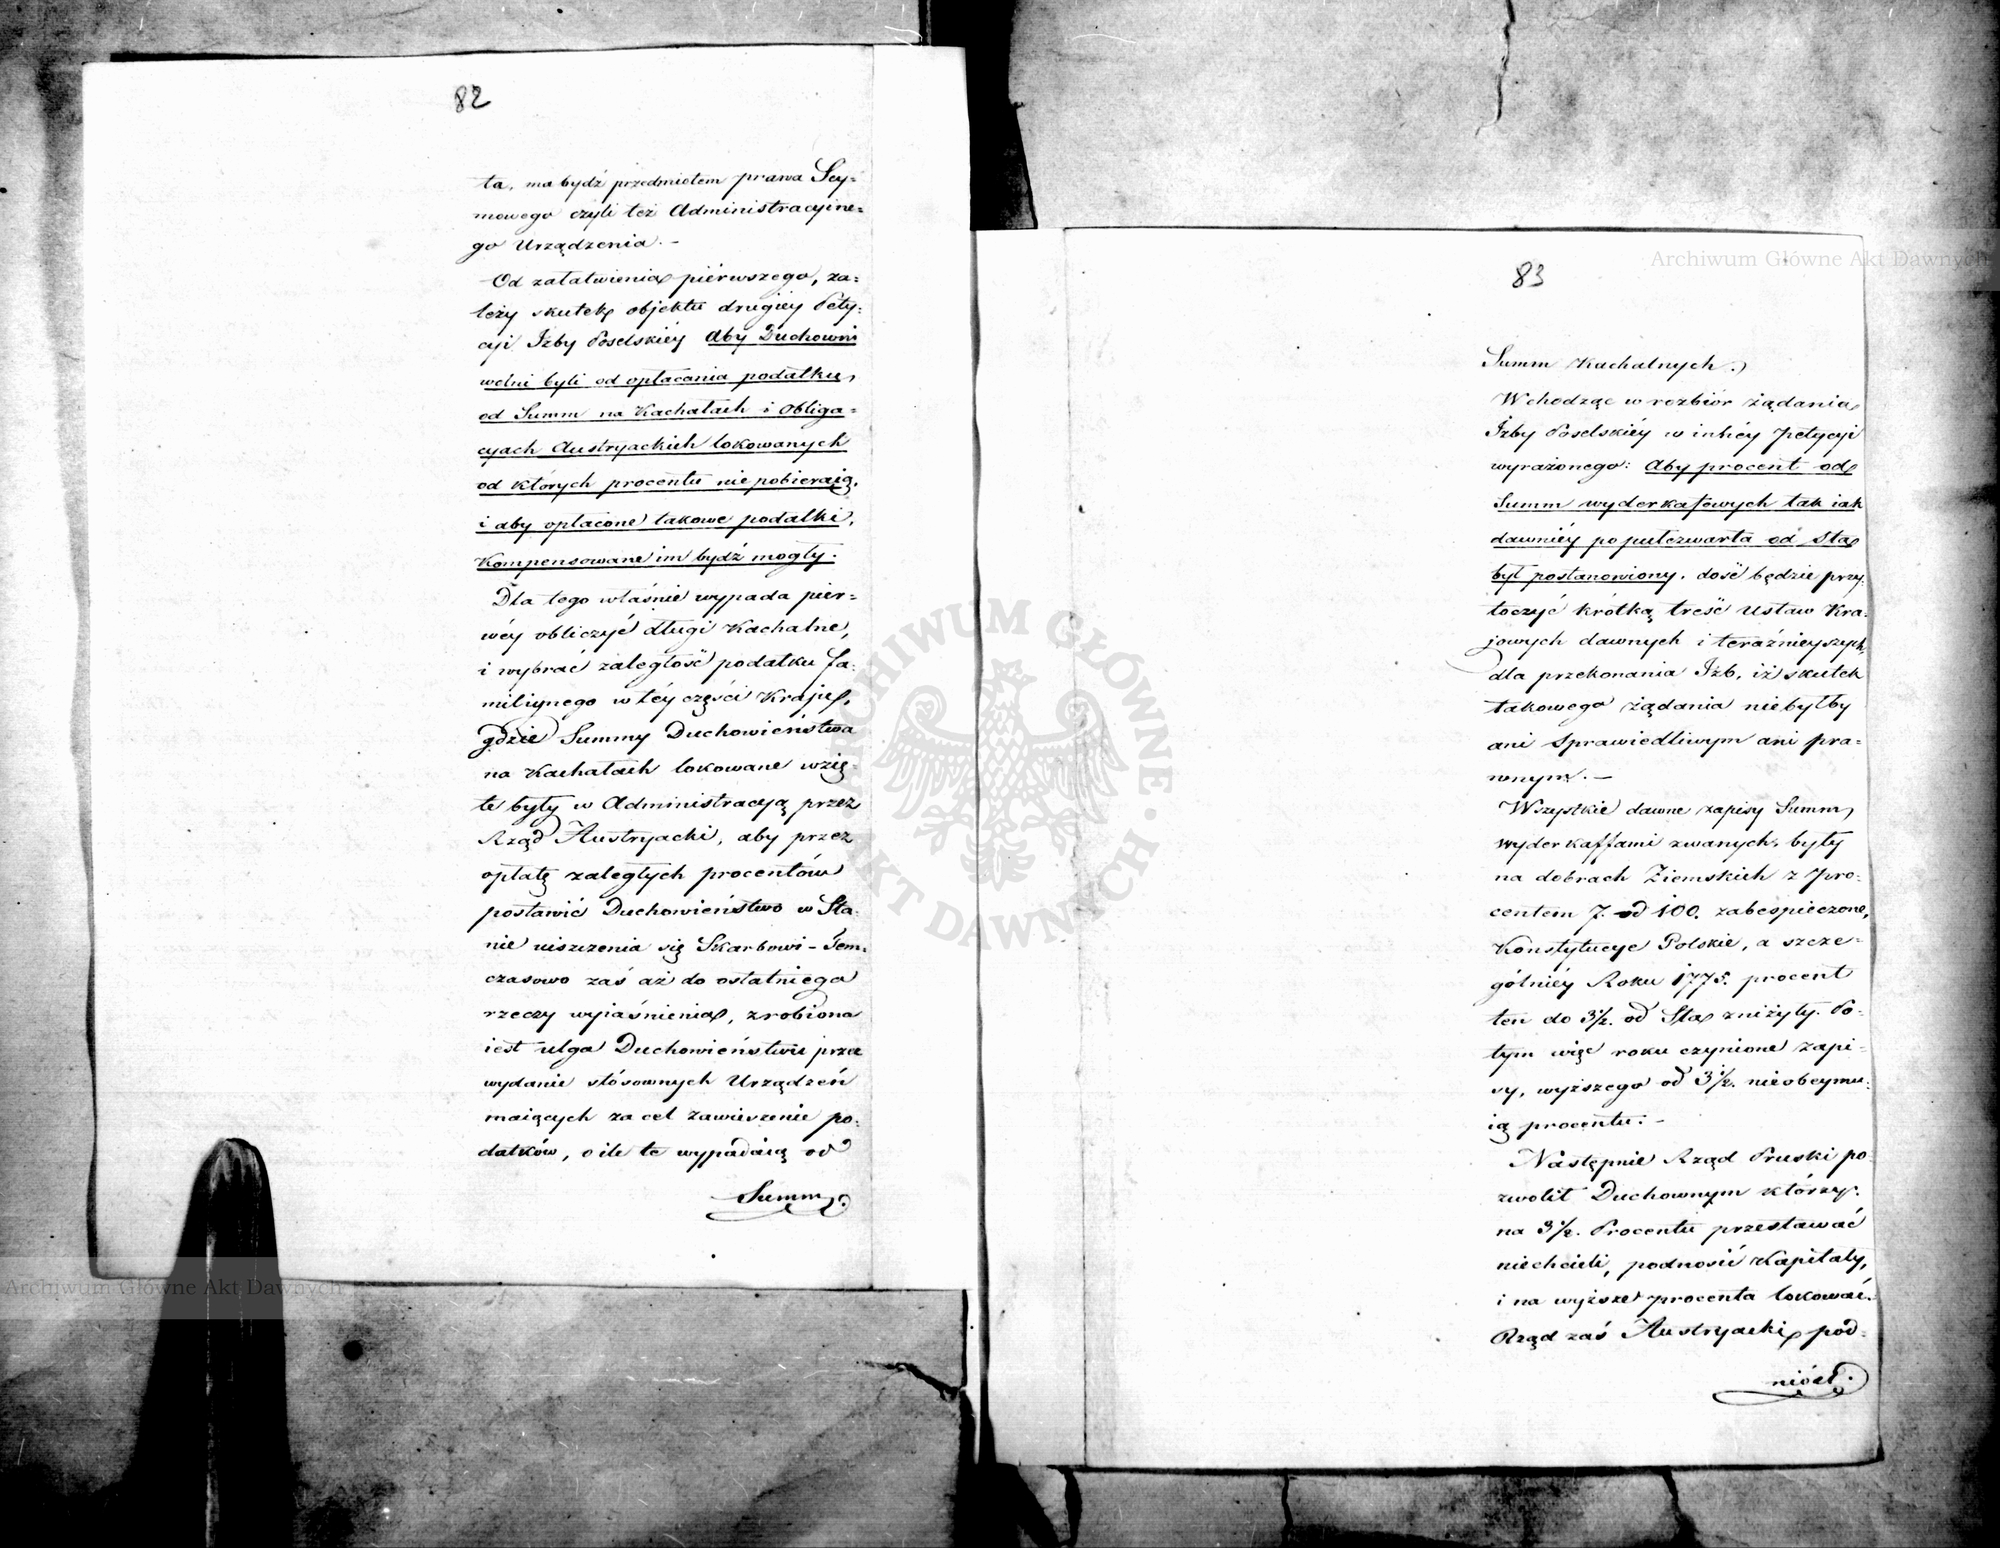 82
ta, ma bydź przedmiotem prawa Sey=
mowego czyli też Administracyine=
go Urządzenia. –
Od załatwienia pierwszego, za=
leży skutek objektu drugiey Pety=
cyi Izby Poselskiéy aby Duchowni
wolni byli od opłacania podatku,
od Summ na Kachałach i Obliga=
cyach Austryackich lokowanych
od których procentu nie pobieraią,
i aby opłacone takowe podatki,
kompensowane im bydź mogły.
Dla tego właśnie wypada pier=
wéy obliczyć długi Kachalne,
i wybrać zaległość podatku fa=
miliynego w téy części Kraju,
gdzie Summy Duchowieństwa
na Kachałach lokowane wzię=
te były w Administracyą przez
Rząd Austryacki, aby przez
opłatę zaległych procentów
postawić Duchowieństwo w Sta=
nie uiszczenia się Skarbowi – Tem=
czasowo zaś aż do ostatniego
rzeczy wyiaśnienia, zrobiona
iest ulga Duchowieństwu przez
wydanie stósownych Urządzeń
maiących za cel zawieszenie po=
datków, o ile te wypadaią od
Summ
83
Summ Kachalnych.
Wchodząc w rozbiór żądania
Izby Poselskiéy w innéy Petycyi
wyrażonego: Aby procent od
Summ wyderkafowych tak iak
dawniéy po pułczwarta od Sta
był postanowiony, dość będzie przy=
toczyć krótką treść Ustaw Kra=
jowych dawnych i teraźnieyszych
dla przekonania Izb, iż skutek
takowego żądania nie byłby
ani Sprawiedliwym ani pra=
wnym. –
Wszystkie dawne zapisy Summ
wyderkaffami zwanych, były
na dobrach Ziemskich z pro=
centem 7. od 100. zabespieczone,
Konstytucye Polskie, a szcze=
gólniéy Roku 1775. procent
ten do 3½. od Sta zniżyły. Po=
tym więc roku czynione zapi=
sy, wyższego od 3½. nieobeymu=
ią procentu. –
Następnie Rząd Pruski po=
zwolił Duchownym którzy
na 3½. Procentu przestawać
niechcieli, podnosić Kapitały,
i na wyższe procenta lokować.
Rząd zaś Austryacki pod=
niósł.
Archiwum Główne Akt Dawnych
Archiwum Główne Akt Dawnych
ARCHIWUM GŁÓWNE AKT DAWNYCH